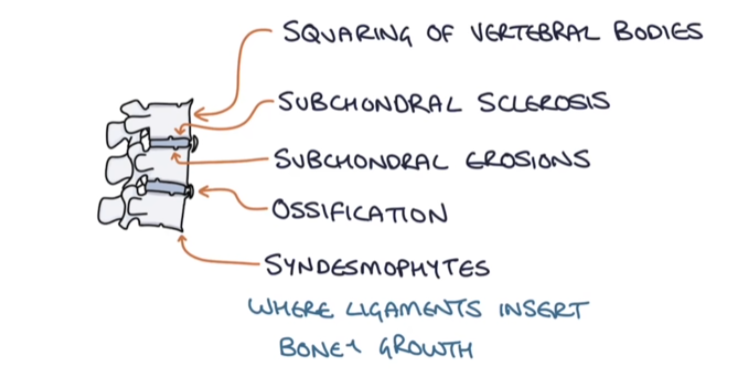 SQUARING OF VERTEBRAL BODIES
SUBCHONDRAL SCLEROSIS
SUBCHONDRAL EROSIONS
OSSIFICATION
SYNDESMOPHYTES
WHERE LIGAMENTS INSERT
BONEY GROWTH